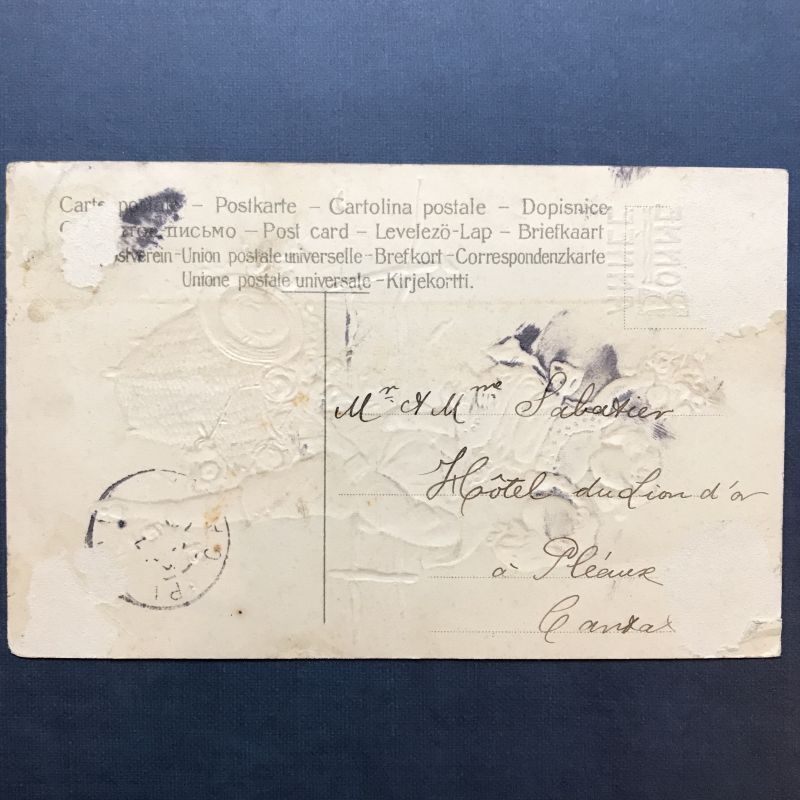 Carte postale – Postkarte – Cartolina postale – Dopisnice
письмо – Post card – Levelezö-Lap – Briefkaart
-Union postale universelle-Brefkort-Correspondenzkarte
Unione postale universale-Kirjekortti.
BONNE
ANNEE
Mr & Mme Sabatier
Hôtel du Lion d'or
à Pléaux
Cantal